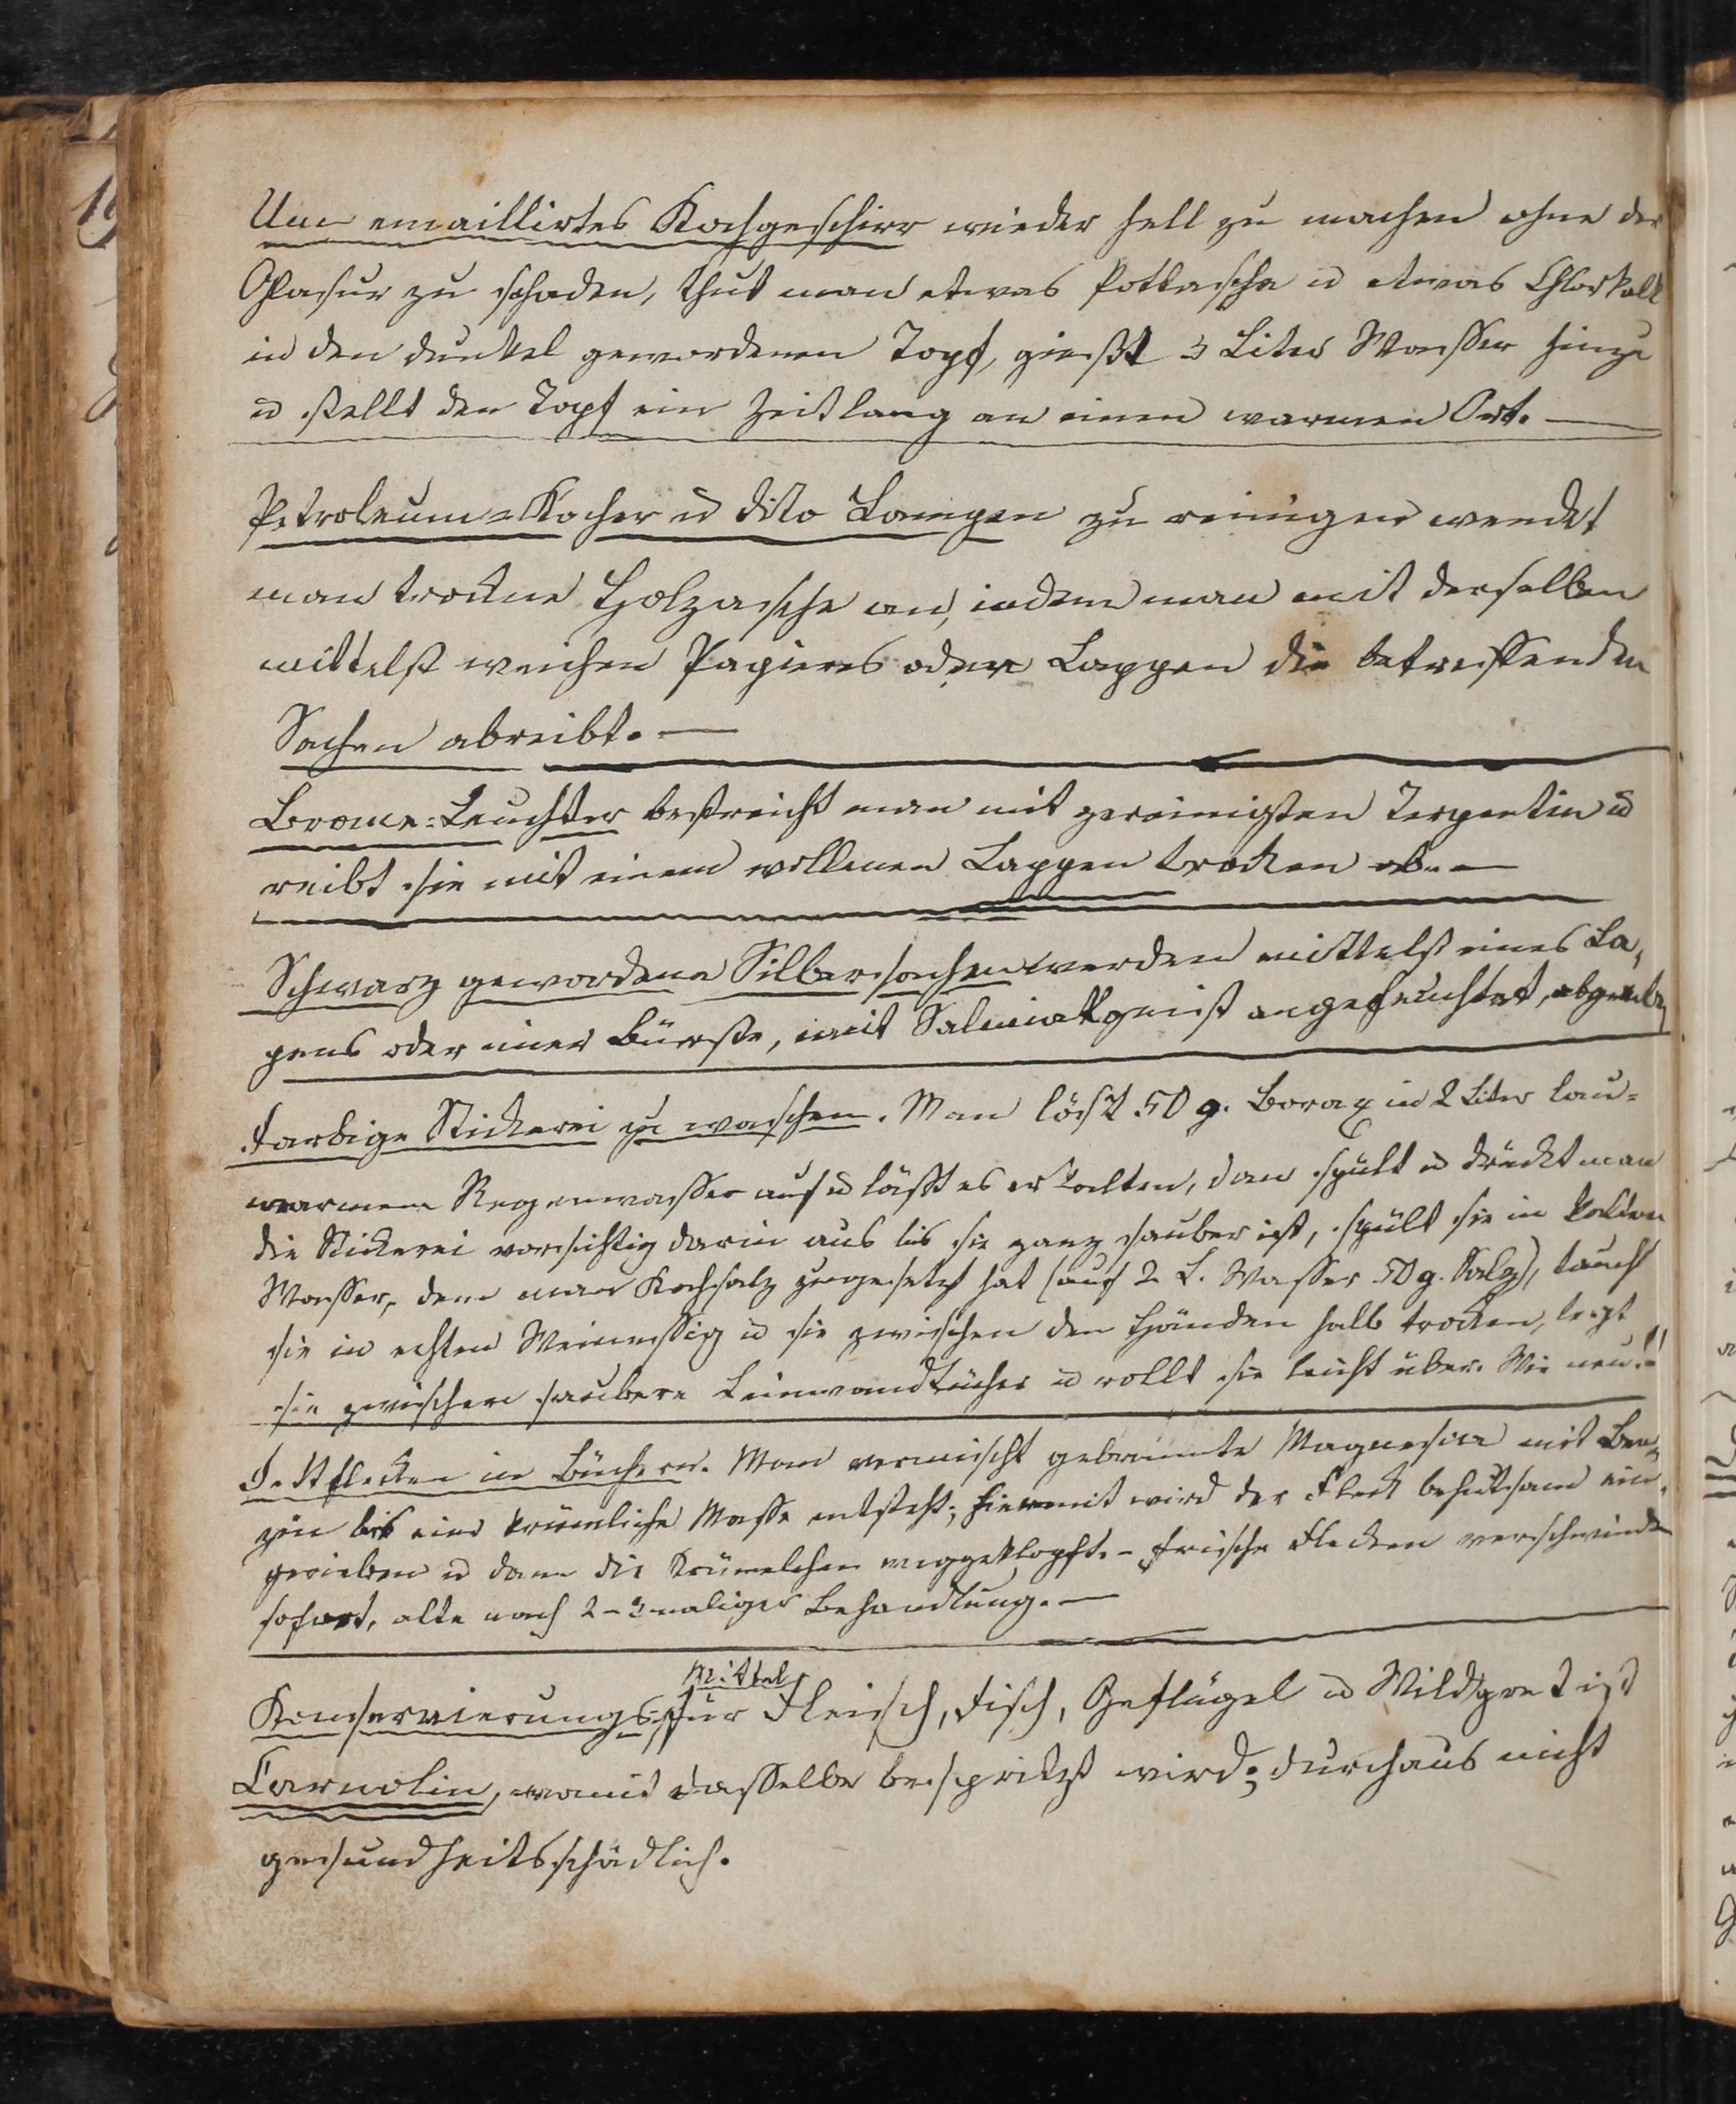 Um emaillirtes Kochgeschirr wieder hell zu machen ohne der
Glasur zu schaden, thut man etwas Pottasche u etwas Chlorkalk
in den dunkel gewordenen Topf, gießt 3 Liter Wasser hinzu
u stellt den Topf ein Zeitlang an einen warmen Ort. —
Petroleum=Kocher u dito Lampen zu reinigen wendet
man trockne Holzasche an, indem man mit derselben
mittelst weichen Papieres oder Lappen die betreffenden
Sachen abreibt. —
Bronce=Leuchter bestreicht man mit gereinigten Terpentin u
reibt sie mit einem wollenen Lappen trocken ab. —
Schwarz gewordene Silbersachen werden mittelst eines La,
pens oder einer Bürste, mit Salmiakgeist angefeuchtet, abgerieben
Farbige Stickerei zu waschen. Man löst 50 g. Borax in 2 Liter lau=
warmem Regenwasser auf u läßt es erkalten, dan spült u drückt man
die Stickerei vorsichtig darin aus bis sie ganz sauber ist, spült sie in kalten
Wasser, dem man Kochsalz zugesetzt hat (auf 2 L. Wasser 50 g. Salz), taucht
sie in echten Weinessig u sie zwischen den Händen halb trocken, legt
sie zwischen saubere Leinwandtücher u rollt sie leicht über. Wie neu!!
Fettflecken in Büchern. Man vermischt gebrannte Magnesia mit Ben,
zin bis eine krümliche Masse entsteht; hiermit wird der Fleck behutsam ein,
gerieben u dann die Krümelchen weggeklopft. – Frische Flecken verschwinden
sofort, alte nach 2–3maliger Behandlung. —
Mittel
Konservierungs=für Fleisch, Fisch, Geflügel u Wildpret ist
Carnolin, womit dasselbe bespritzt wird; durchaus nicht
gesundheitsschädlich.